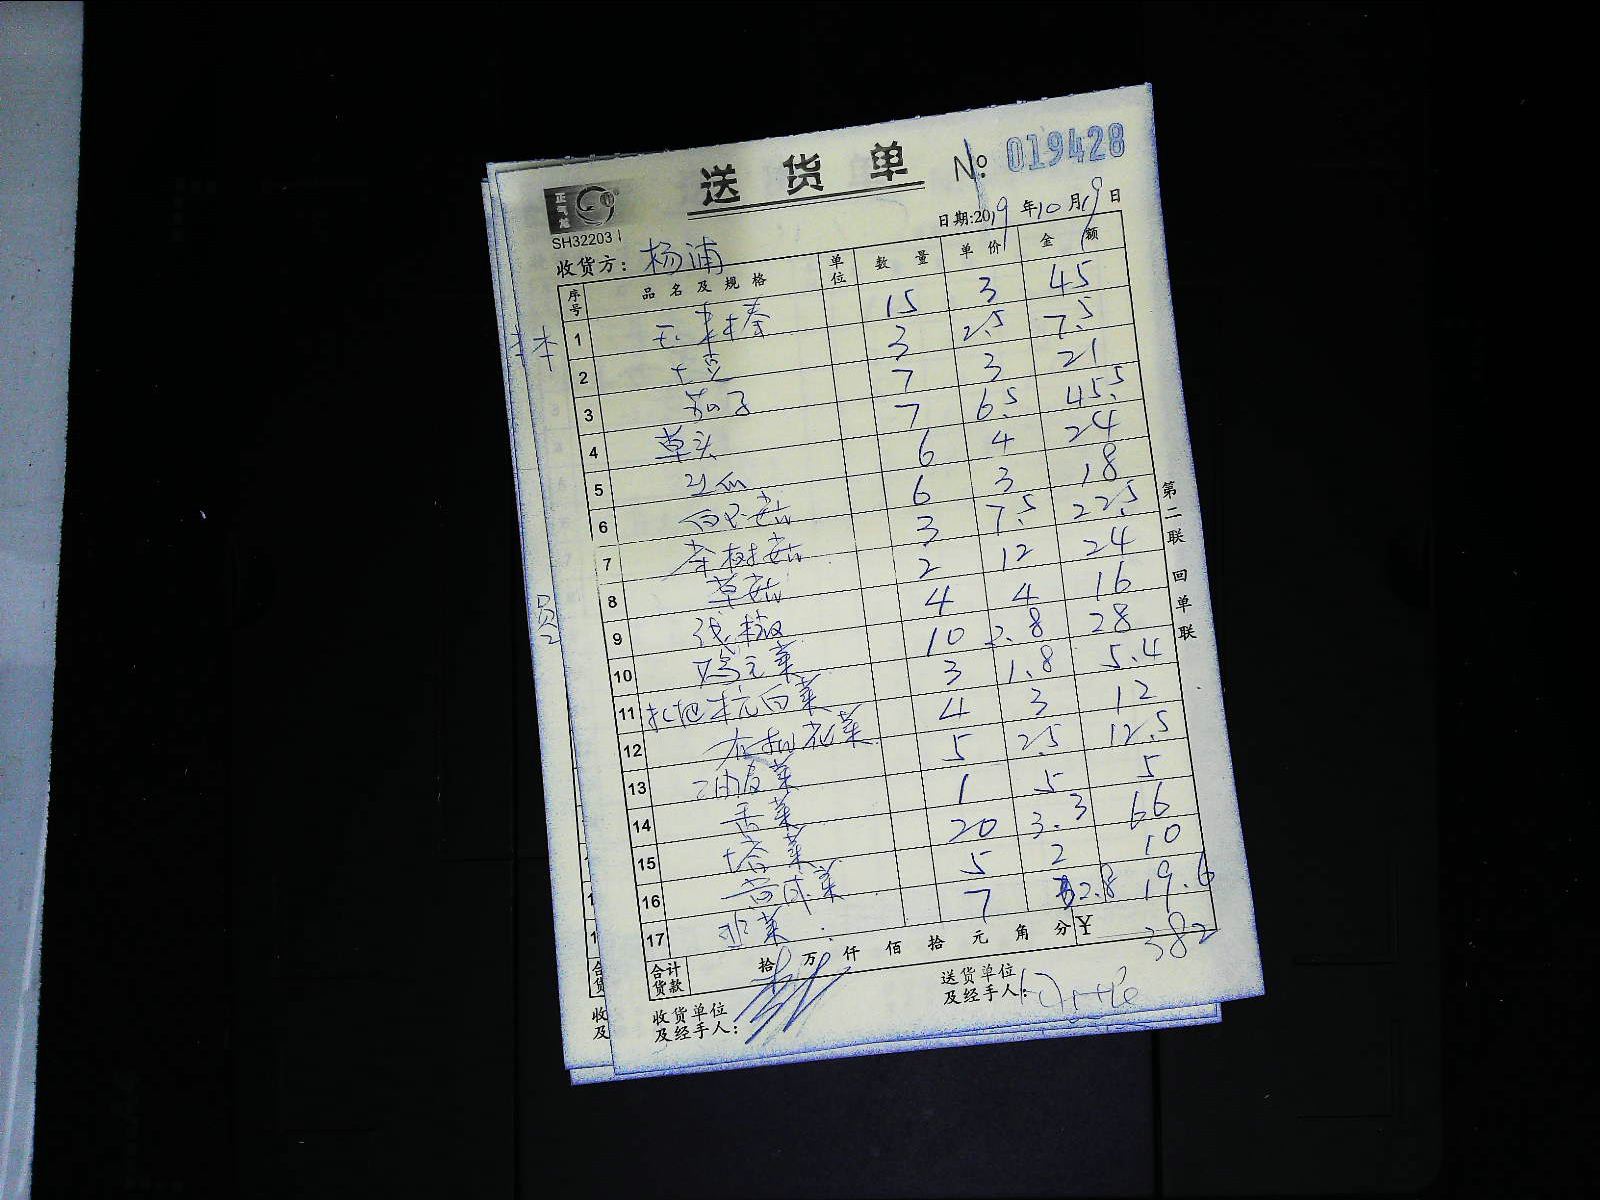 送货单 № 019428
正气龙
SH32203
日期:2019年10月19日
收货方：杨浦
序号 品名及规格 单位 数量 单价 金额
1 玉米棒 15 3 45
2 土豆 3 2.5 7.5
3 茄子 7 3 21
4 草头 7 6.5 45.5
5 6 4 24
6 白玉菇 6 3 18
7 茶树菇 3 7.5 22.5
8 草菇 2 12 24
9 线椒 4 4 16
10 鸡毛菜 10 2.8 28
11 杭白菜 3 1.8 5.4
12 有机花菜 4 3 12
13 油麦菜 5 2.5 12.5
14 1 5 5
15 塔菜 20 3.3 66
16 菜 5 2 10
17 菜 7 2.8 19.6
合计货款 拾 万 仟 佰 拾 元 角 分 ¥ 382
收货单位及经手人：
送货单位及经手人：
第二联 回单联